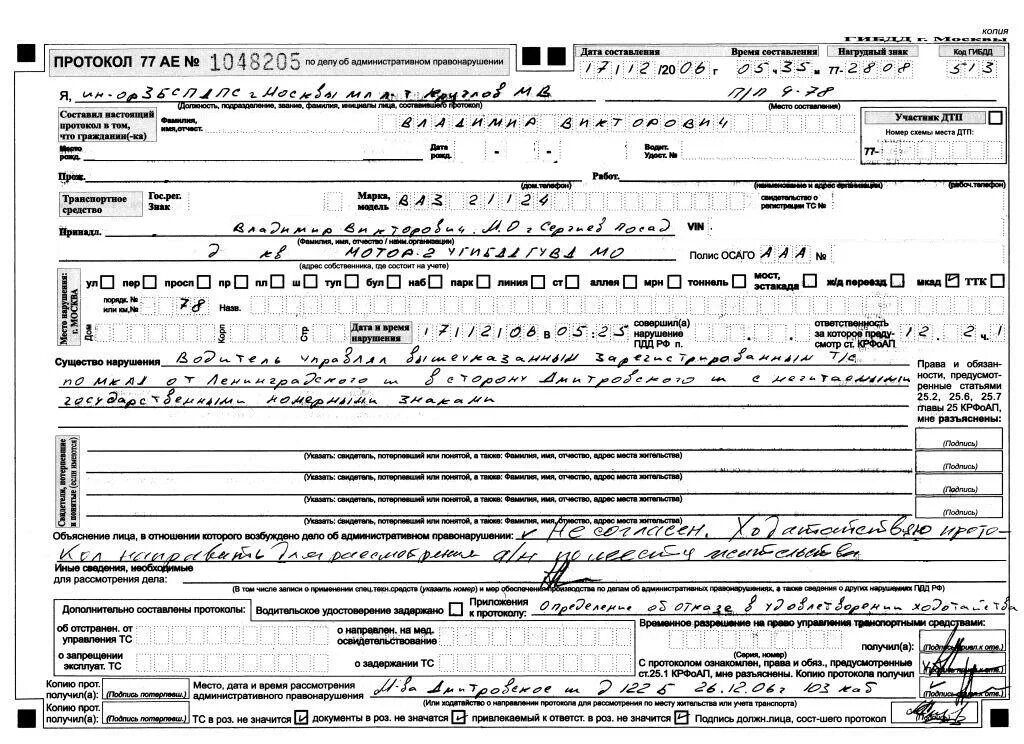 копия
ГИБДД г. Москвы
ПРОТОКОЛ 77 АЕ № 1048205 по делу об административном правонарушении
Дата составления Время составления Нагрудный знак Код ГИБДД
17 12 2006 г 05 35 м 77-2808 513
Я, ин-ор 3БСПДПС г Москвы мл. л-т Круглов М В П/П 9-78
(Должность, подразделение, звание, фамилия, инициалы лица, составившего протокол) (Место составления)
Составил настоящий протокол в том, что гражданин(-ка)
Фамилия, имя, отчест. ВЛАДИМИР ВИКТОРОВИЧ
Участник ДТП
Номер схемы места ДТП:
77-
Место рожд. Дата рожд. - - Водит. Удост. №
Прож. Работ.
(дом.телефон) (наименование и адрес организации) (рабоч.телефон)
Транспортное средство Гос.рег. Знак Марка, модель ВАЗ 21124 свидетельство о регистрации ТС №
Принадл. Владимир Викторович. М.О г Сергиев Посад VIN
(Фамилия, имя, отчество / наим.организации)
д кв МОТОР-2 УГИБДД ГУВД МО Полис ОСАГО ААА №
(адрес собственника, где состоит на учете)
Место нарушения: г. МОСКВА
ул пер просп пр пл ш туп бул наб парк линия ст аллея мрн тоннель мост, эстакада ж/д переезд мкад ТТК
порядк. № или км,№ 78 Назв.
Дом Кор Стр Дата и время нарушения 17 12 06 в 05:25 совершил(а) нарушение ПДД РФ п. ответственность за которое предусмотр ст. КРФоАП 12 2 ч 1
Существо нарушения Водитель управлял вышеуказанным зарегистрированным Т/С
по МКАД от Ленинградского ш в сторону Дмитровского ш с нечитаемыми
государственными номерными знаками
Права и обязанности, предусмотренные статьями 25.2, 25.6, 25.7 главы 25 КРФоАП, мне разъяснены:
Свидетели, потерпевшие и понятые (если имеются)
(Подпись)
(Указать: свидетель, потерпевший или понятой, а также: Фамилия, имя, отчество, адрес места жительства)
(Подпись)
(Указать: свидетель, потерпевший или понятой, а также: Фамилия, имя, отчество, адрес места жительства)
(Подпись)
(Указать: свидетель, потерпевший или понятой, а также: Фамилия, имя, отчество, адрес места жительства)
(Подпись)
(Указать: свидетель, потерпевший или понятой, а также: Фамилия, имя, отчество, адрес места жительства)
Объяснение лица, в отношении которого возбуждено дело об административном правонарушении: Не согласен. Ходатайствую прото-
кол направить для рассмотрения а/н по месту жительства
Иные сведения, необходимые
для рассмотрения дела:
(В том числе записи о применении спец.техн.средств (указать номер) и мер обеспечения производства по делам об административных правонарушениях, а также сведения о других нарушениях ПДД РФ)
Дополнительно составлены протоколы: Водительское удостоверение задержано Приложения к протоколу: Определение об отказе в удовлетворении ходотайства
об отстранен. от управления ТС о направлен. на мед. освидетельствование
Временное разрешение на право управления транспортными средствами:
получил(а):
(Серия, номер)
о запрещении эксплуат. ТС о задержании ТС
С протоколом ознакомлен, права и обяз., предусмотренные ст.25.1 КРФоАП, мне разъяснены. Копию протокола получил
Копию прот. получил(а): (Подпись потерпевш.) Место, дата и время рассмотрения административного правонарушения М-ва Дмитровское ш д 122 Б 26.12.06г 103 каб
(Или ходатайство о направлении протокола для рассмотрения по месту жительства или учета транспорта)
Копию прот. получил(а): (Подпись потерпевш.) ТС в роз. не значится документы в роз. не значатся привлекаемый к ответст. в роз. не значится Подпись должн.лица, сост-шего протокол